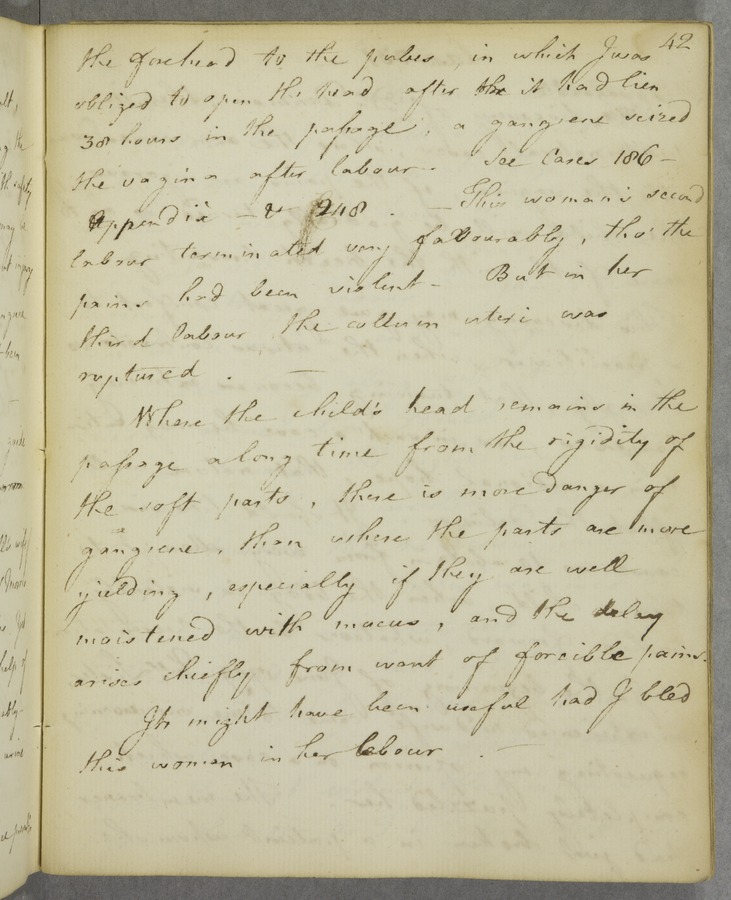 42
the forehead to the pubes, in which I was
obliged to open the head after the it had lien
38 hours in the passage, a gangrene seized
the vagina after labour - See Cases 186 -
Appendix - & 248 . - This woman's second
labour terminated very favourably, tho' the
pains had been violent - But in her
third labour the collum uteri was
ruptured . -
Where the child's head remains in the
passage a long time from the rigidity of
the soft parts, there is more danger of
gangrene, than where the parts are more
yielding, especially if they are well
moistened with mucus, and the delay
arises chiefly from want of forcible pains.
It might have been useful had I bled
this woman in her labour . -